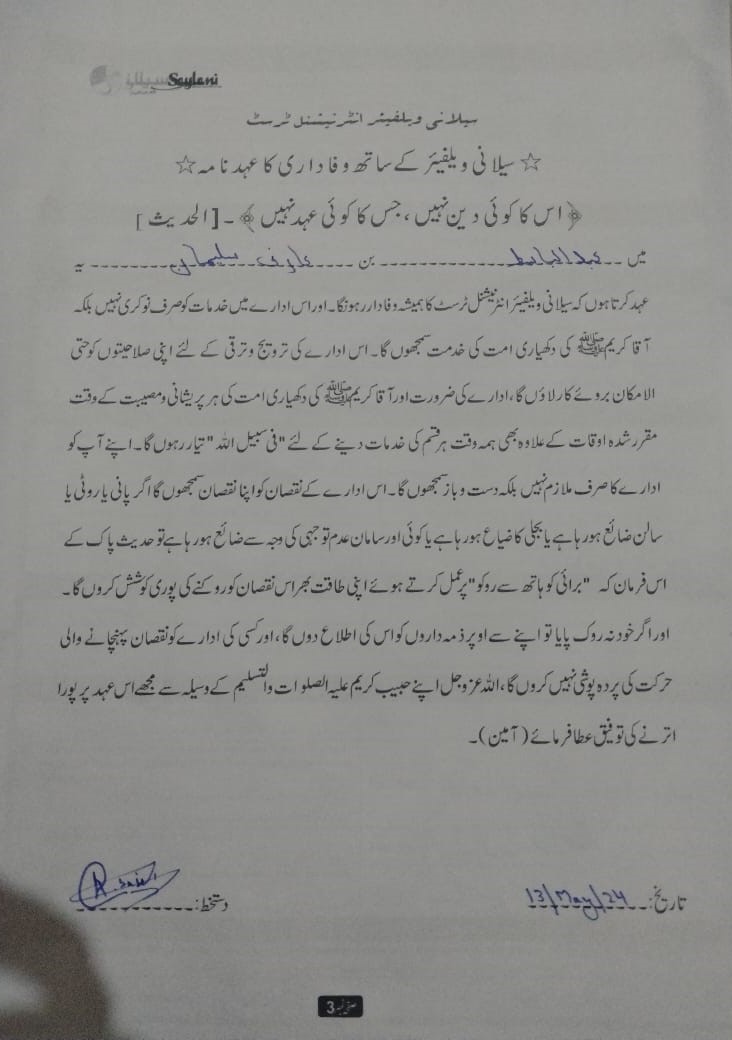 Saylani
سیلانی ویلفیئر انٹرنیشنل ٹرسٹ
☆ سیلانی ویلفیئر کے ساتھ وفاداری کا عہد نامہ ☆
﴿اس کا کوئی دین نہیں، جس کا کوئی عہد نہیں﴾۔[الحدیث]
میں عبدالباسط بن عارف سلیمان یہ
عہد کرتا ہوں کہ سیلانی ویلفیئر انٹرنیشنل ٹرسٹ کا ہمیشہ وفادار رہونگا۔ اور اس ادارے میں خدمات کو صرف نوکری نہیں بلکہ
آقا کریم ﷺ کی دکھیاری امت کی خدمت سمجھوں گا۔ اس ادارے کی ترویج و ترقی کے لئے اپنی صلاحیتوں کو حتی
الامکان بروئے کار لاؤں گا، ادارے کی ضرورت اور آقا کریم ﷺ کی دکھیاری امت کی ہر پریشانی و مصیبت کے وقت
مقرر شدہ اوقات کے علاوہ بھی ہمہ وقت ہر قسم کی خدمات دینے کے لئے "فی سبیل اللہ" تیار رہوں گا۔ اپنے آپ کو
ادارے کا صرف ملازم نہیں بلکہ دست و باز سمجھوں گا۔ اس ادارے کے نقصان کو اپنا نقصان سمجھوں گا اگر پانی یا روٹی یا
سالن ضائع ہو رہا ہے یا بجلی کا ضیاع ہو رہا ہے یا کوئی اور سامان عدم توجہی کی وجہ سے ضائع ہو رہا ہے تو حدیث پاک کے
اس فرمان کہ "برائی کو ہاتھ سے روکو" پر عمل کرتے ہوئے اپنی طاقت بھر اس نقصان کو روکنے کی پوری کوشش کروں گا۔
اور اگر خود نہ روک پایا تو اپنے سے اوپر ذمہ داروں کو اس کی اطلاع دوں گا، اور کسی کی ادارے کو نقصان پہنچانے والی
حرکت کی پردہ پوشی نہیں کروں گا، اللہ عزوجل اپنے حبیب کریم علیہ الصلوات والتسلیم کے وسیلہ سے مجھے اس عہد پر پورا
اترنے کی توفیق عطا فرمائے (آمین)۔
تاریخ: 13/May/24 دستخط:
صفحہ نمبر 3